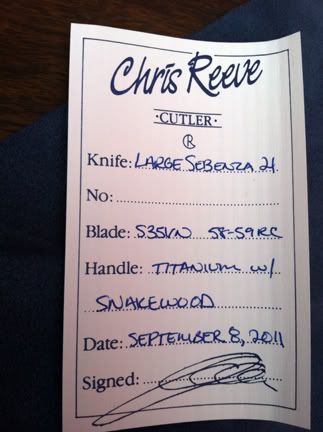 Chris Reeve
·CUTLER·
®
Knife: LARGE SEBENZA 21
No:
Blade: S35VN 58-59RC
Handle: TITANIUM W/
SNAKEWOOD
Date: SEPTEMBER 8, 2011
Signed: